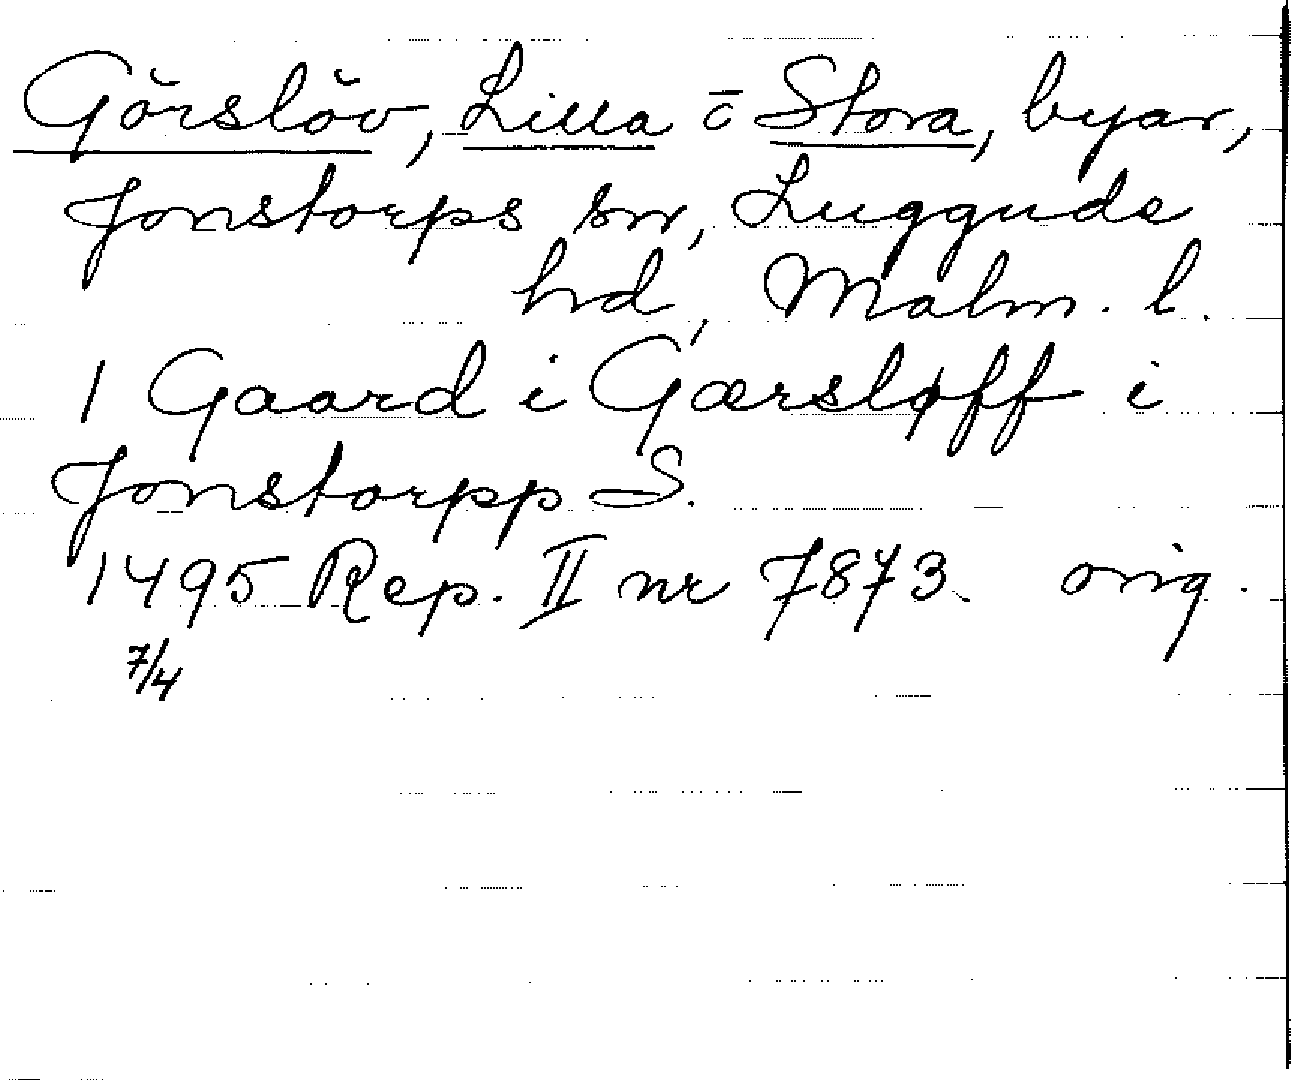 Görslöv, Lilla o Stora, byar,
Jonstorps sn, Luggude
hd, Malm. l.
1 Gaard i Gærsløff i
Jonstorpp S.
1495 Rep. II nr 7873. orig.
7/4